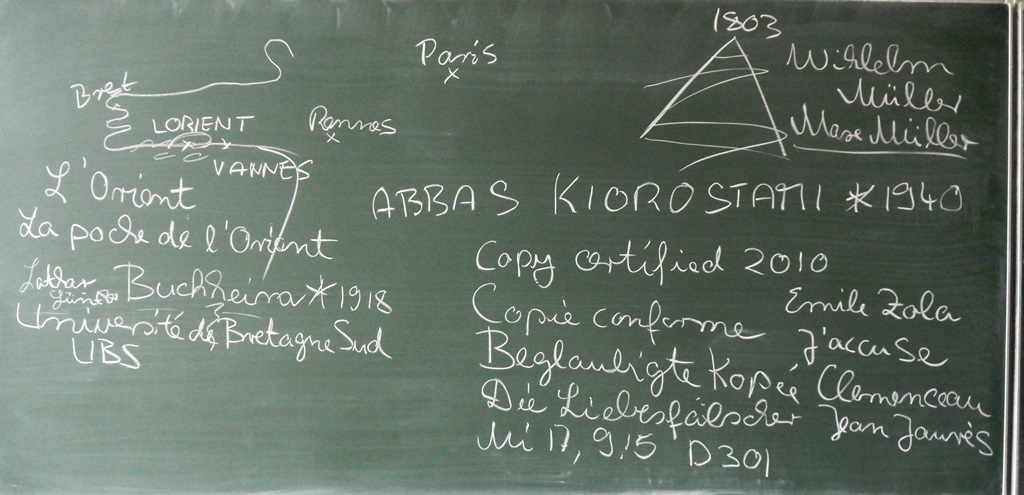 1803
Paris
Wihlelm
Müller
Max Müller
Brest
LORIENT
Rennes
VANNES
L'Orient
La poche de l'Orient
ABBAS KIOROSTAMI *1940
Lothar
Günter Buchheim *1918
Université de Bretagne Sud
UBS
Copy certified 2010
Copie conforme
Beglaubigte Kopie
Die Liebesfälscher
Mi 17, 9.15 D301
Emile Zola
J'accuse
Clemenceau
Jean Jaurès